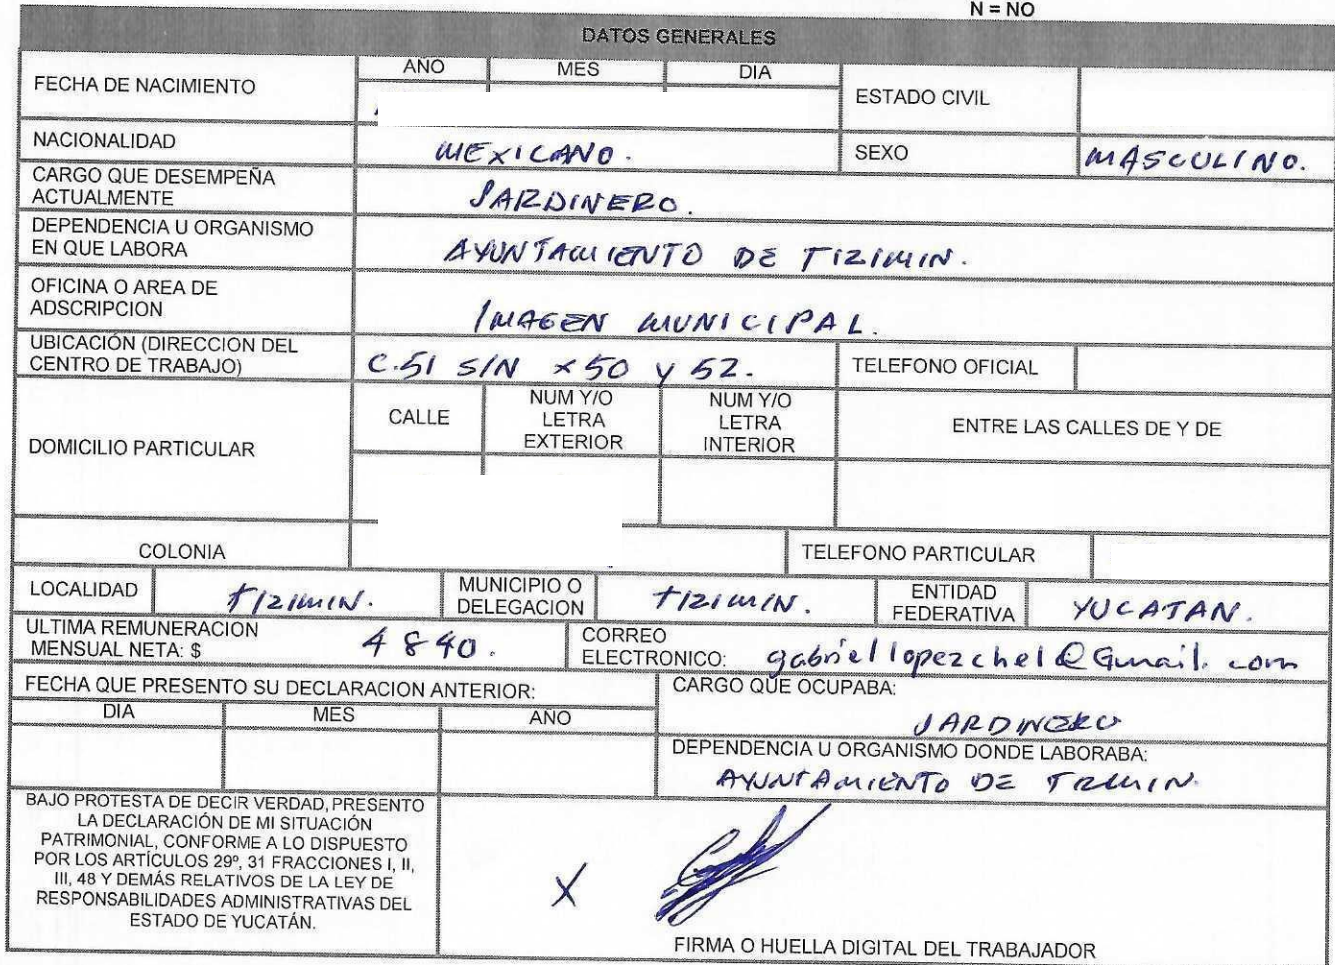 N = NO
DATOS GENERALES
FECHA DE NACIMIENTO
AÑO MES DIA
ESTADO CIVIL
NACIONALIDAD MEXICANO. SEXO MASCULINO.
CARGO QUE DESEMPEÑA
ACTUALMENTE
JARDINERO.
DEPENDENCIA U ORGANISMO
EN QUE LABORA
AYUNTAMIENTO DE TIZIMIN.
OFICINA O AREA DE
ADSCRIPCION
IMAGEN MUNICIPAL.
UBICACIÓN (DIRECCION DEL
CENTRO DE TRABAJO)
C.51 S/N x50 y 52. TELEFONO OFICIAL
DOMICILIO PARTICULAR
CALLE
NUM Y/O
LETRA
EXTERIOR
NUM Y/O
LETRA
INTERIOR
ENTRE LAS CALLES DE Y DE
COLONIA TELEFONO PARTICULAR
LOCALIDAD TIZIMIN.
MUNICIPIO O
DELEGACION
TIZIMIN.
ENTIDAD
FEDERATIVA
YUCATAN.
ULTIMA REMUNERACION
MENSUAL NETA: $ 4840.
CORREO
ELECTRONICO: gabriellopezchel@Gmail.com
FECHA QUE PRESENTO SU DECLARACION ANTERIOR:
DIA MES AÑO
CARGO QUE OCUPABA:
JARDINERO
DEPENDENCIA U ORGANISMO DONDE LABORABA:
AYUNTAMIENTO DE
BAJO PROTESTA DE DECIR VERDAD, PRESENTO
LA DECLARACIÓN DE MI SITUACIÓN
PATRIMONIAL, CONFORME A LO DISPUESTO
POR LOS ARTÍCULOS 29º, 31 FRACCIONES I, II,
III, 48 Y DEMÁS RELATIVOS DE LA LEY DE
RESPONSABILIDADES ADMINISTRATIVAS DEL
ESTADO DE YUCATÁN.
X
FIRMA O HUELLA DIGITAL DEL TRABAJADOR